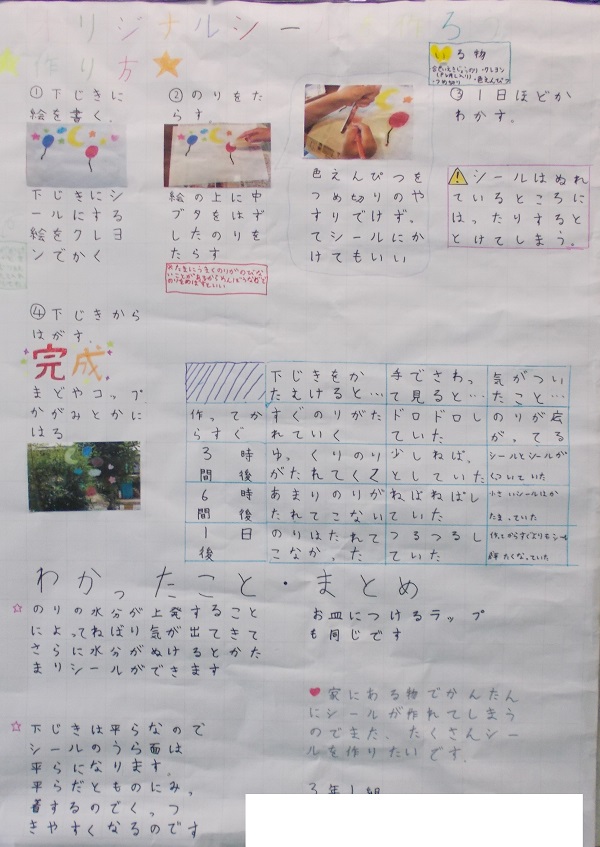 オリジナルシールを作ろう
作り方
いる物
①下じきに
絵を書く。
下じきにシ
ールにする
絵をクレヨ
ンでかく
②のりをた
らす。
絵の上に中
ブタをはず
したのりを
たらす
色えんぴつを
つめ切りのや
すりでけず。
てシールにか
けてもいい
③1日ほどか
わかす。
シールはぬれ
ているところに
はったりすると
とけてしまう。
④下じきから
はがす。
完成
まどやコップ
かがみとかに
はる
下じきをか
たむけると…
手でさわっ
て見ると…
気がつい
たこと…
作ってか
らすぐ
すぐのりがた
れていく
ドロドロし
ていた
のりが広
がってる
3時
間後
ゆっくりのり
がたれてく
少しねば
としていた
シールとシールが
くっついていた
6時
間後
あまりのりが
たれてこない
ねばねばし
ていた
小さいシールはか
たまっていた
1日
後
のりはたれて
こなかった
つるつるし
ていた
かたくなっていた
わかったこと・まとめ
のりの水分が上発すること
によってねばり気が出てきて
さらに水分がぬけるとかた
まりシールができます
下じきは平らなので
シールのうら面は
平らになります。
平らだとものにみっ
着するのでくっつ
きやすくなるのです
お皿につけるラップ
も同じです
家にある物でかんたん
にシールが作れてしまう
のでまた、たくさんシー
ルを作りたいです。
3年1組